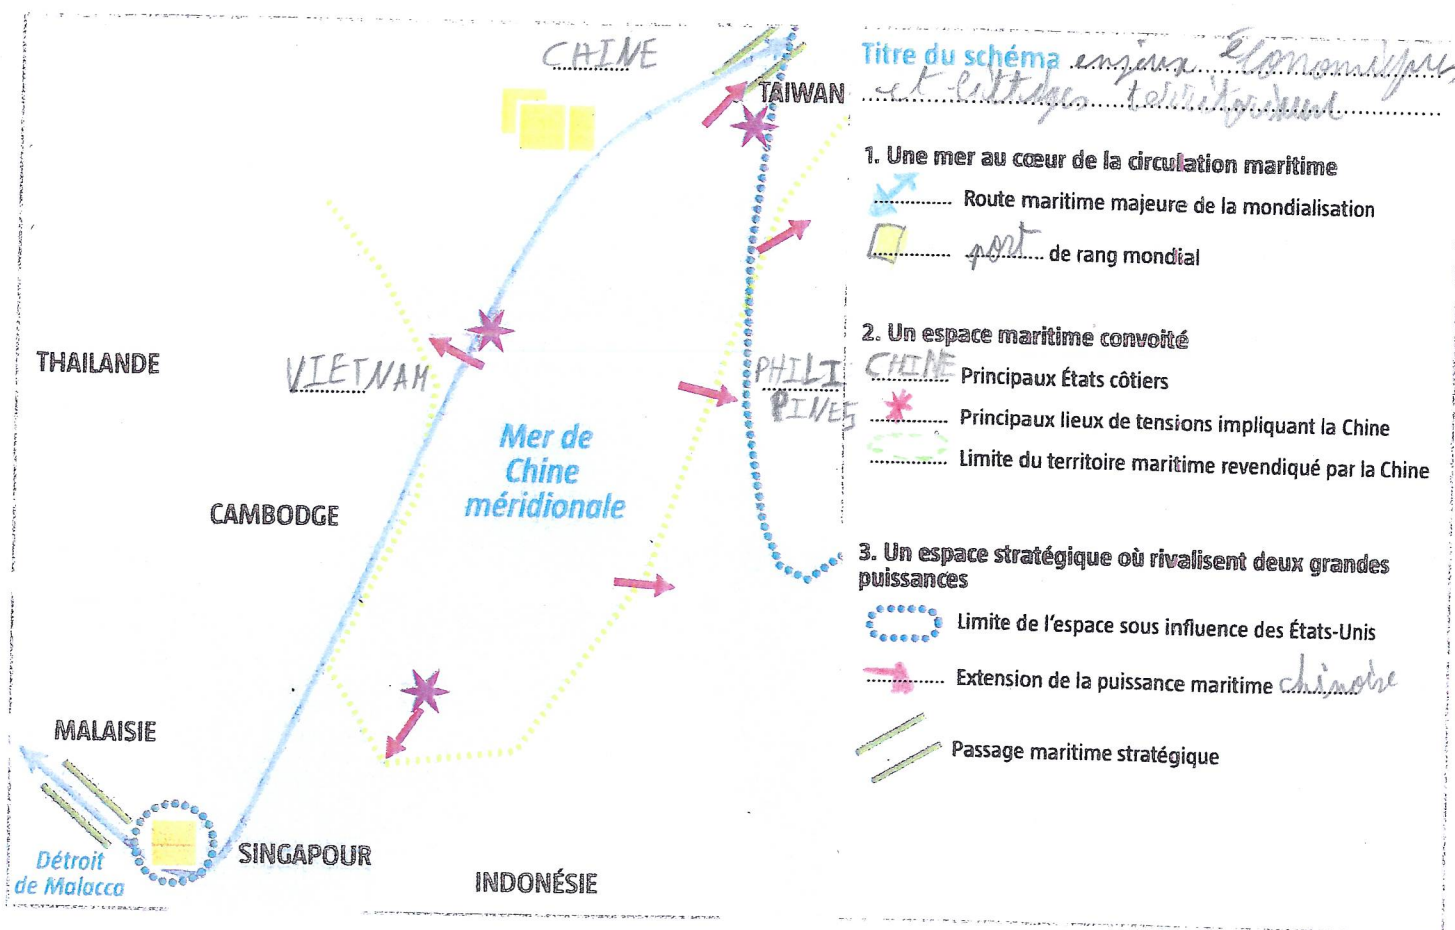 CHINE
TAIWAN
THAILANDE
VIETNAM
PHILI
PINES
Mer de
Chine
méridionale
CAMBODGE
MALAISIE
SINGAPOUR
Détroit
de Malacca
INDONÉSIE
Titre du schéma enjeux économiques
et littiges territoriaux
1. Une mer au cœur de la circulation maritime
Route maritime majeure de la mondialisation
port de rang mondial
2. Un espace maritime convoité
CHINE Principaux États côtiers
Principaux lieux de tensions impliquant la Chine
Limite du territoire maritime revendiqué par la Chine
3. Un espace stratégique où rivalisent deux grandes
puissances
Limite de l'espace sous influence des États-Unis
Extension de la puissance maritime chinoise
Passage maritime stratégique